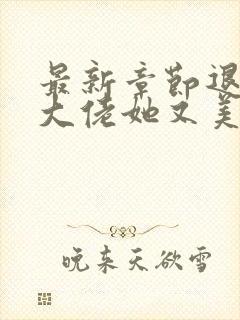 最新章节退
大佬她又美
晚来天欲雪